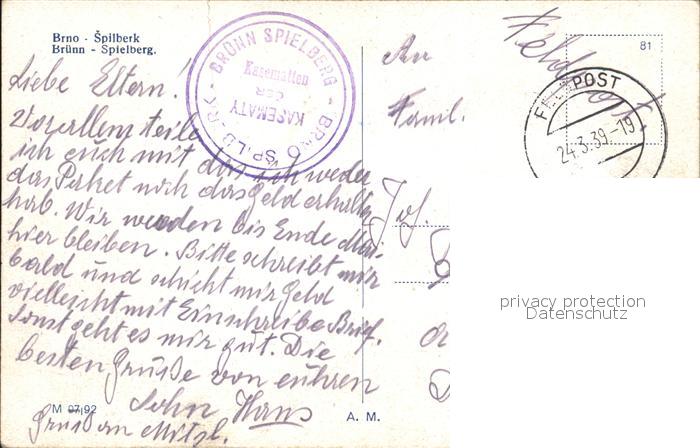 Brno - Špilberk
Brünn - Spielberg.
Liebe Eltern!
Vor allem teile
ich euch mit das ich weder
das Paket noch das Geld erhalten
hab. Wir werden bis Ende Mai
hier bleiben. Bitte schreibt mir
bald und schickt mir Geld
vielleicht mit Einschreibe Brief.
Sonst geht es mir gut. Die
besten Grüße von euhren
Sohn Hans
Gruß an Mitzl.
M 07,92
BRÜNN SPIELBERG - BRNO ŠPILBERK -
Kasematten
DER
KASEMATY
A. M.
An
Famil.
Jos.
Feldpost
81
FELDPOST
24.3.39.-19
privacy protection
Datenschutz